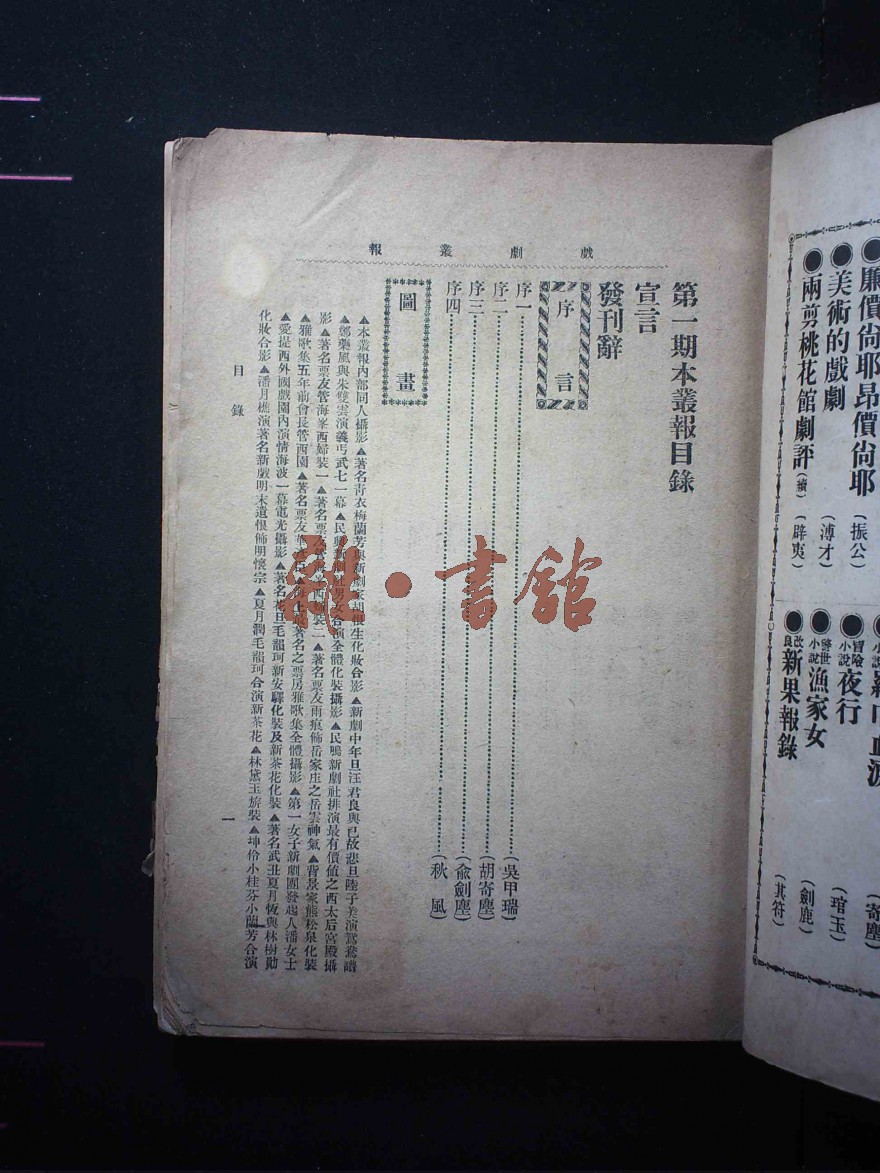 廉價尙耶昂價尙耶(振公)
美術的戲劇(溥才)
兩剪桃花館劇評(續)(辟夷)
(寄塵)
冒險小說夜行(琯玉)
警世小說漁家女(劍鹿)
改良新果報錄(其符)
戲劇叢報
第一期本叢報目錄
宣言
發刊辭
序言
序一(吳甲瑞)
序二(胡寄塵)
序三(俞劍塵)
序四(秋風)
圖畫
▲本叢報內部同人攝影▲著名靑衣梅蘭芳與新劇家胡恨生化妝合影▲新劇中年旦汪君良與已故悲旦陸子美演鴛鴦譜
▲鄭藥風與朱雙雲演義丐武七一幕▲民鳴新劇社男女合演全體化裝攝影▲民鳴新劇社排演最有價値之西太后宮殿攝
影▲著名票友管海峯西婦裝一▲著名票友管海峯西婦裝二▲著名票友雨痕飾岳家庄之岳雲神氣▲背景家熊松泉化裝
▲雅歌集五年前會長管西園▲著名票友▲海上最著名之票房雅歌集全體攝影▲第一女子新劇團發起人潘女士
▲愛提西外國戲園內演情海波一幕電光攝影▲著名花旦毛韻珂新安驛化裝及新茶花化裝▲著名武丑夏月恆與林樹勛
化妝合影▲潘月樵演著名新戲明末遺恨飾明懷宗▲夏月潤毛韻珂合演新茶花▲林黛玉旂裝▲坤伶小桂芬小蘭芳合演
目錄
一
雜·書舘